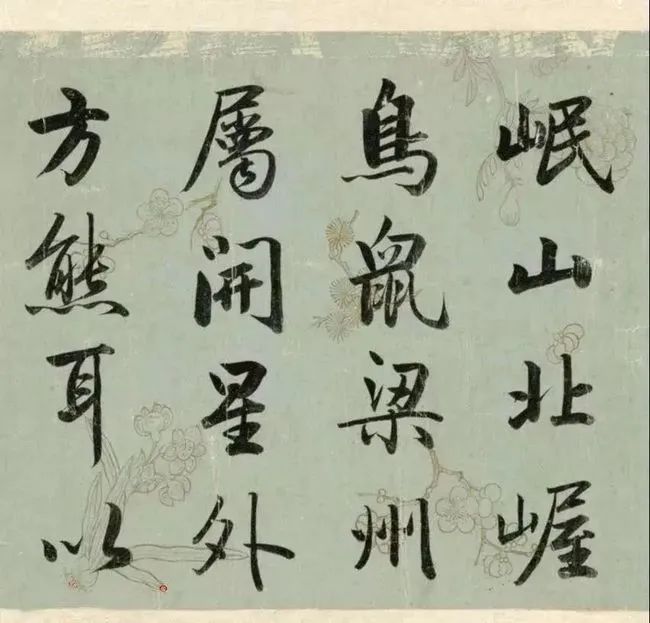 岷山北幄
鳥鼠梁州
屬開星外
方熊耳以